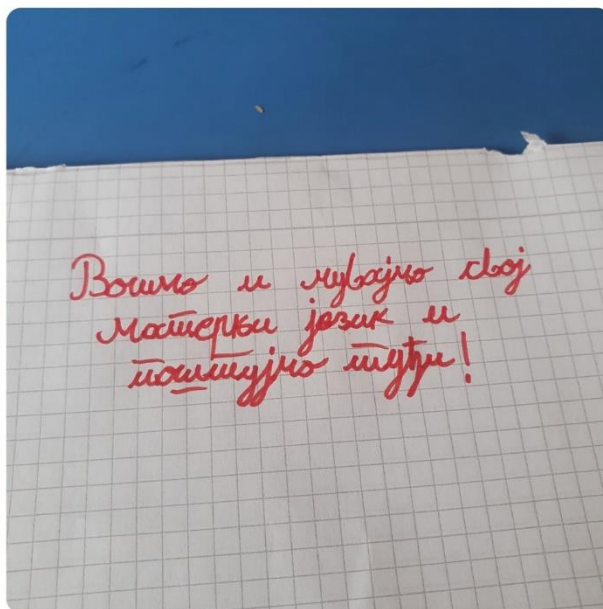 Волимо и чувајмо свој
матерњи језик и
поштујмо туђи!